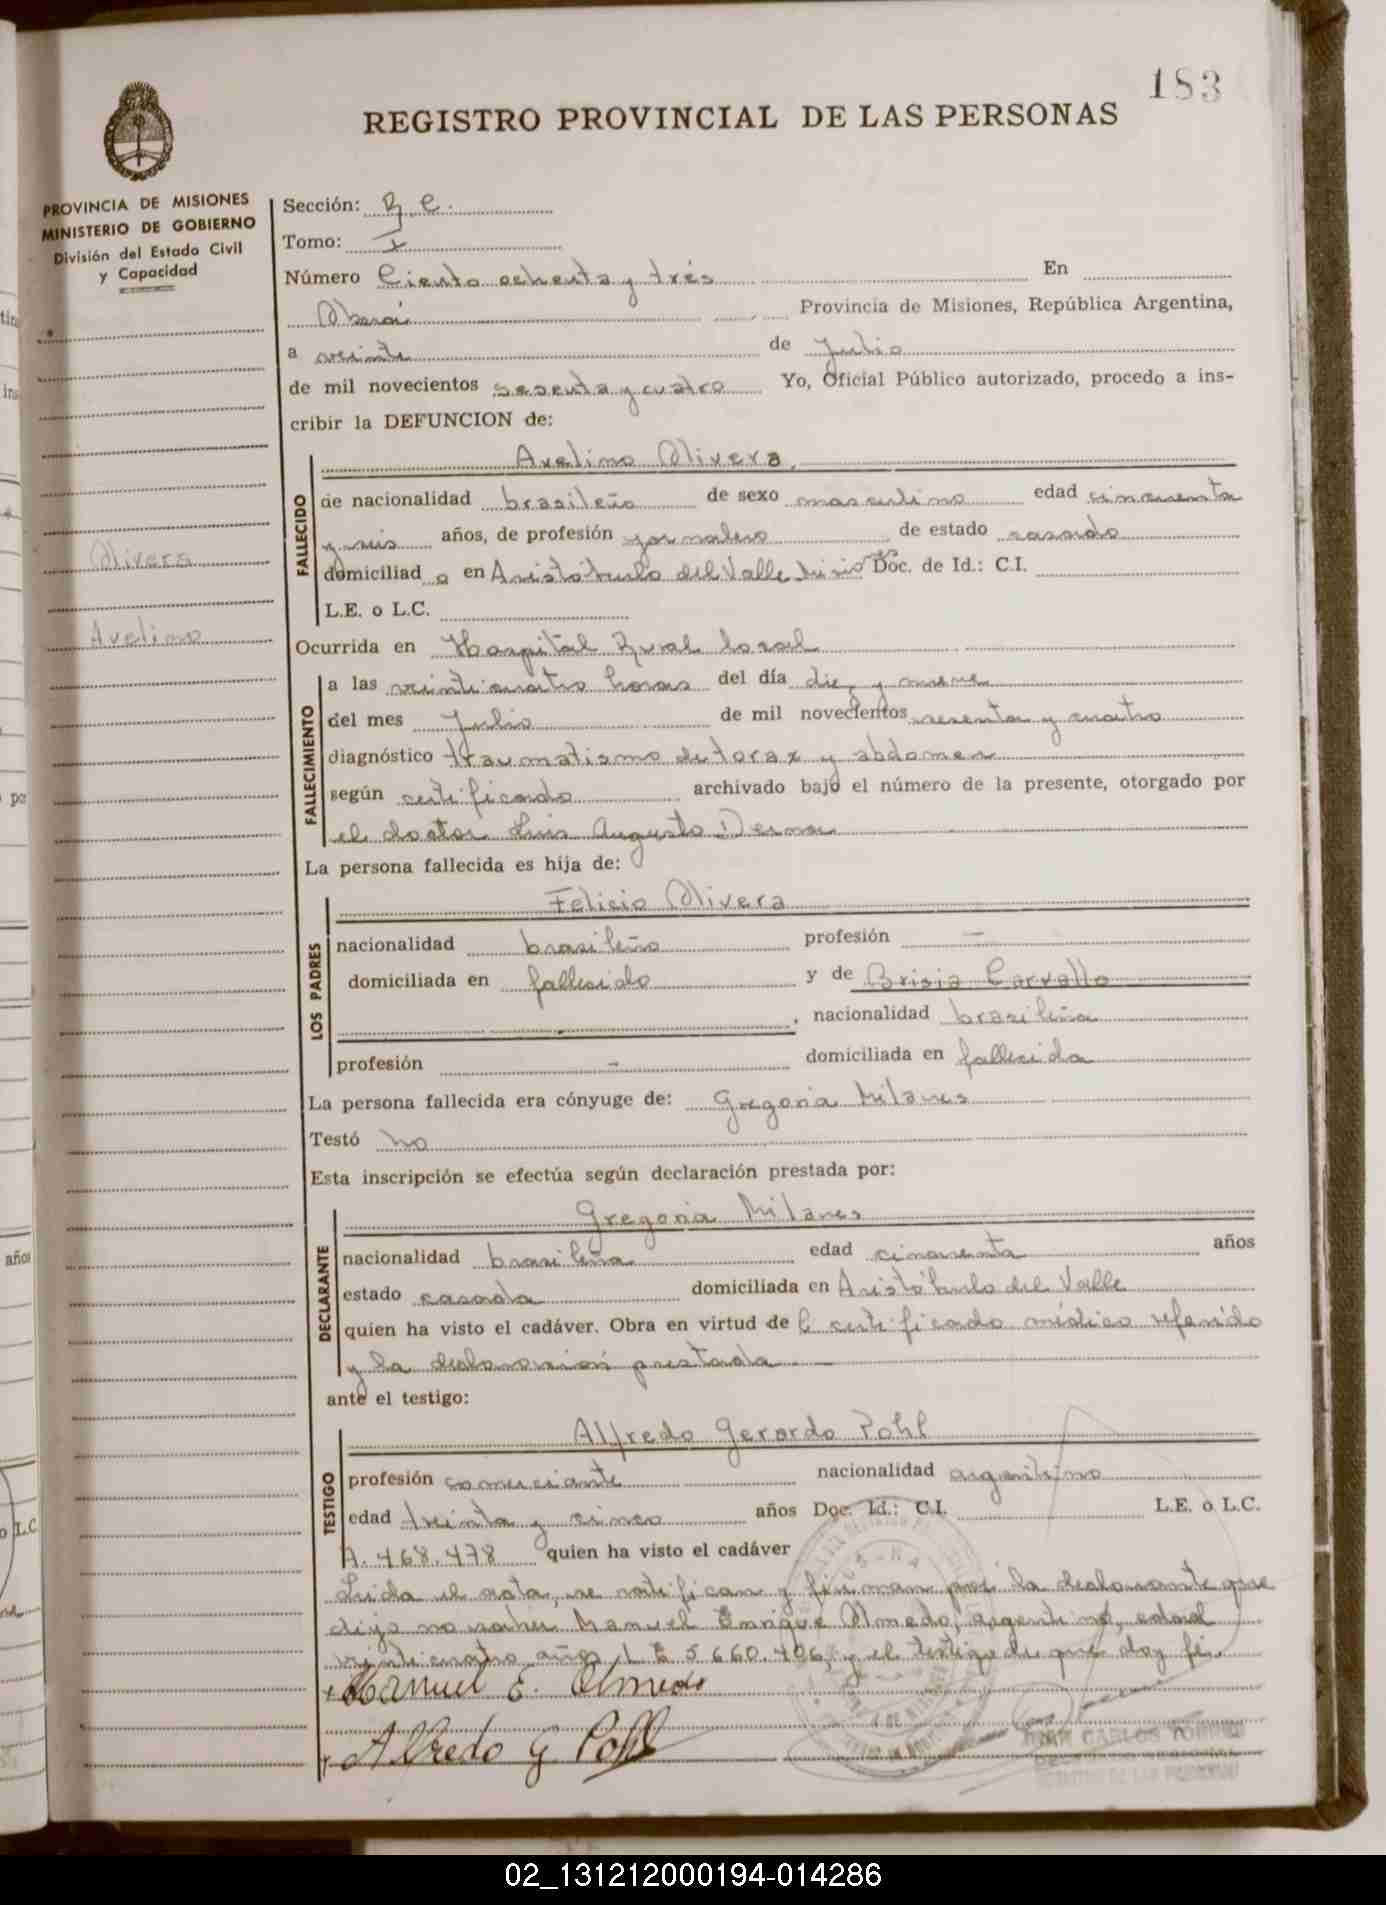 183
REGISTRO PROVINCIAL DE LAS PERSONAS
PROVINCIA DE MISIONES
MINISTERIO DE GOBIERNO
División del Estado Civil
y Capacidad
Olivera
Avelino
Sección:
Tomo: I
Número Ciento ochenta y trés En
Oberá Provincia de Misiones, República Argentina,
a veinte de Julio
de mil novecientos sesenta y cuatro Yo, Oficial Público autorizado, procedo a ins-
cribir la DEFUNCION de:
FALLECIDO
Avelino Olivera
de nacionalidad brasileño de sexo masculino edad cincuenta
y seis años, de profesión jornalero de estado casado
domiciliad o en Aristóbulo del Valle Doc. de Id.: C.I.
L.E. o L.C.
Ocurrida en Hospital Rural local
FALLECIMIENTO
a las veinticuatro horas del día diez y nueve
del mes Julio de mil novecientos sesenta y cuatro
diagnóstico traumatismo de torax y abdomen
según certificado archivado bajo el número de la presente, otorgado por
el doctor Luis Augusto Derna
La persona fallecida es hija de:
LOS PADRES
Felicio Olivera
nacionalidad brasileño profesión -
domiciliada en fallecido y de Brisia Carvallo
, nacionalidad brasileña
profesión - domiciliada en fallecida
La persona fallecida era cónyuge de: Gregoria Milanes
Testó no
Esta inscripción se efectúa según declaración prestada por:
DECLARANTE
Gregoria Milanes
nacionalidad brasileña edad cincuenta años
estado casada domiciliada en Aristóbulo del Valle
quien ha visto el cadáver. Obra en virtud de l certificado médico referido
y la declaración prestada
ante el testigo:
TESTIGO
Alfredo Gerardo Pohl
profesión comerciante nacionalidad argentino
edad treinta y cinco años Doc. Id.: C.I. L.E. o L.C.
A. 468.478 quien ha visto el cadáver
Leida el acta, se ratifican y firman por la declarante que
dijo no saber Manuel Enrique Olmedo, argentino, edad
veinticuatro años, L E 5 660.406, y el testigo de que doy fé.
Manuel E. Olmedo
Alfredo G Pohl
JUAN CARLOS
02_131212000194-014286